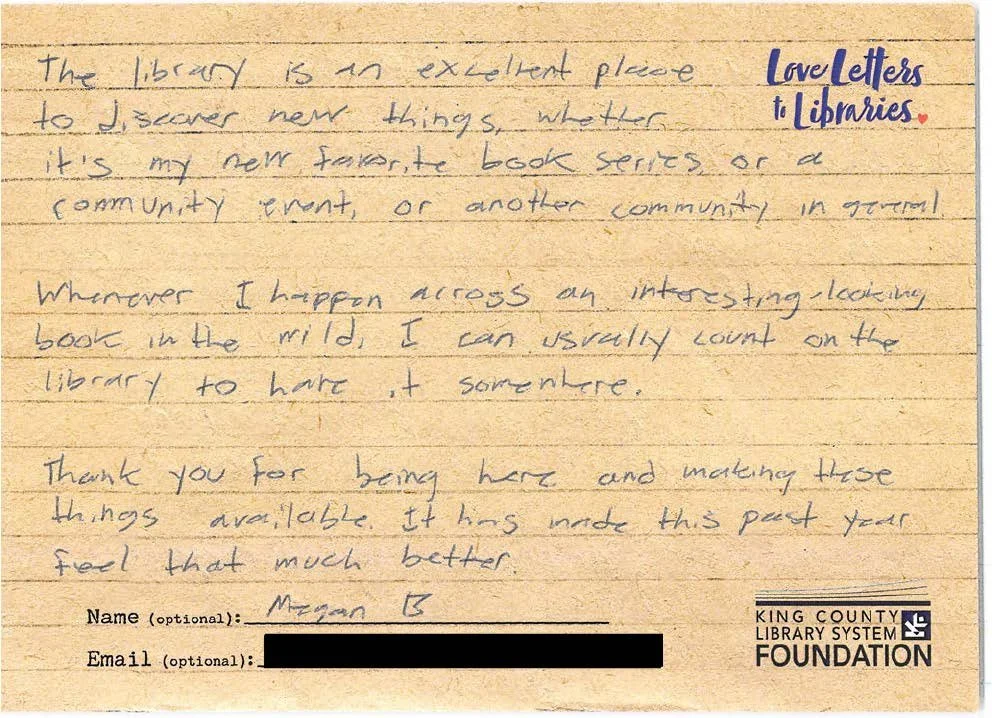 The library is an excellent place
to discover new things, whether
it's my new favorite book series, or a
community event, or another community in general
Love Letters
to Libraries.
Whenever I happen across an interesting-looking
book in the wild, I can usually count on the
library to have it somewhere.
Thank you for being here and making these
things available. It has made this past year
feel that much better.
Name (optional): Megan B
Email (optional):
KING COUNTY
LIBRARY SYSTEM
FOUNDATION